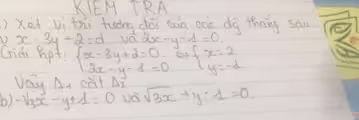 KIỂM TRA
1) Xét vị trí tương đối của các đg thẳng sau
x - 3y + 2 = 0 và 2x - y - 1 = 0.
Giải hpt: { x - 3y + 2 = 0 { x = 2
2x - y - 1 = 0 { y = -1
Vậy Δ1 cắt Δ2
b) -√3x - y + 1 = 0 và √3x + y - 1 = 0